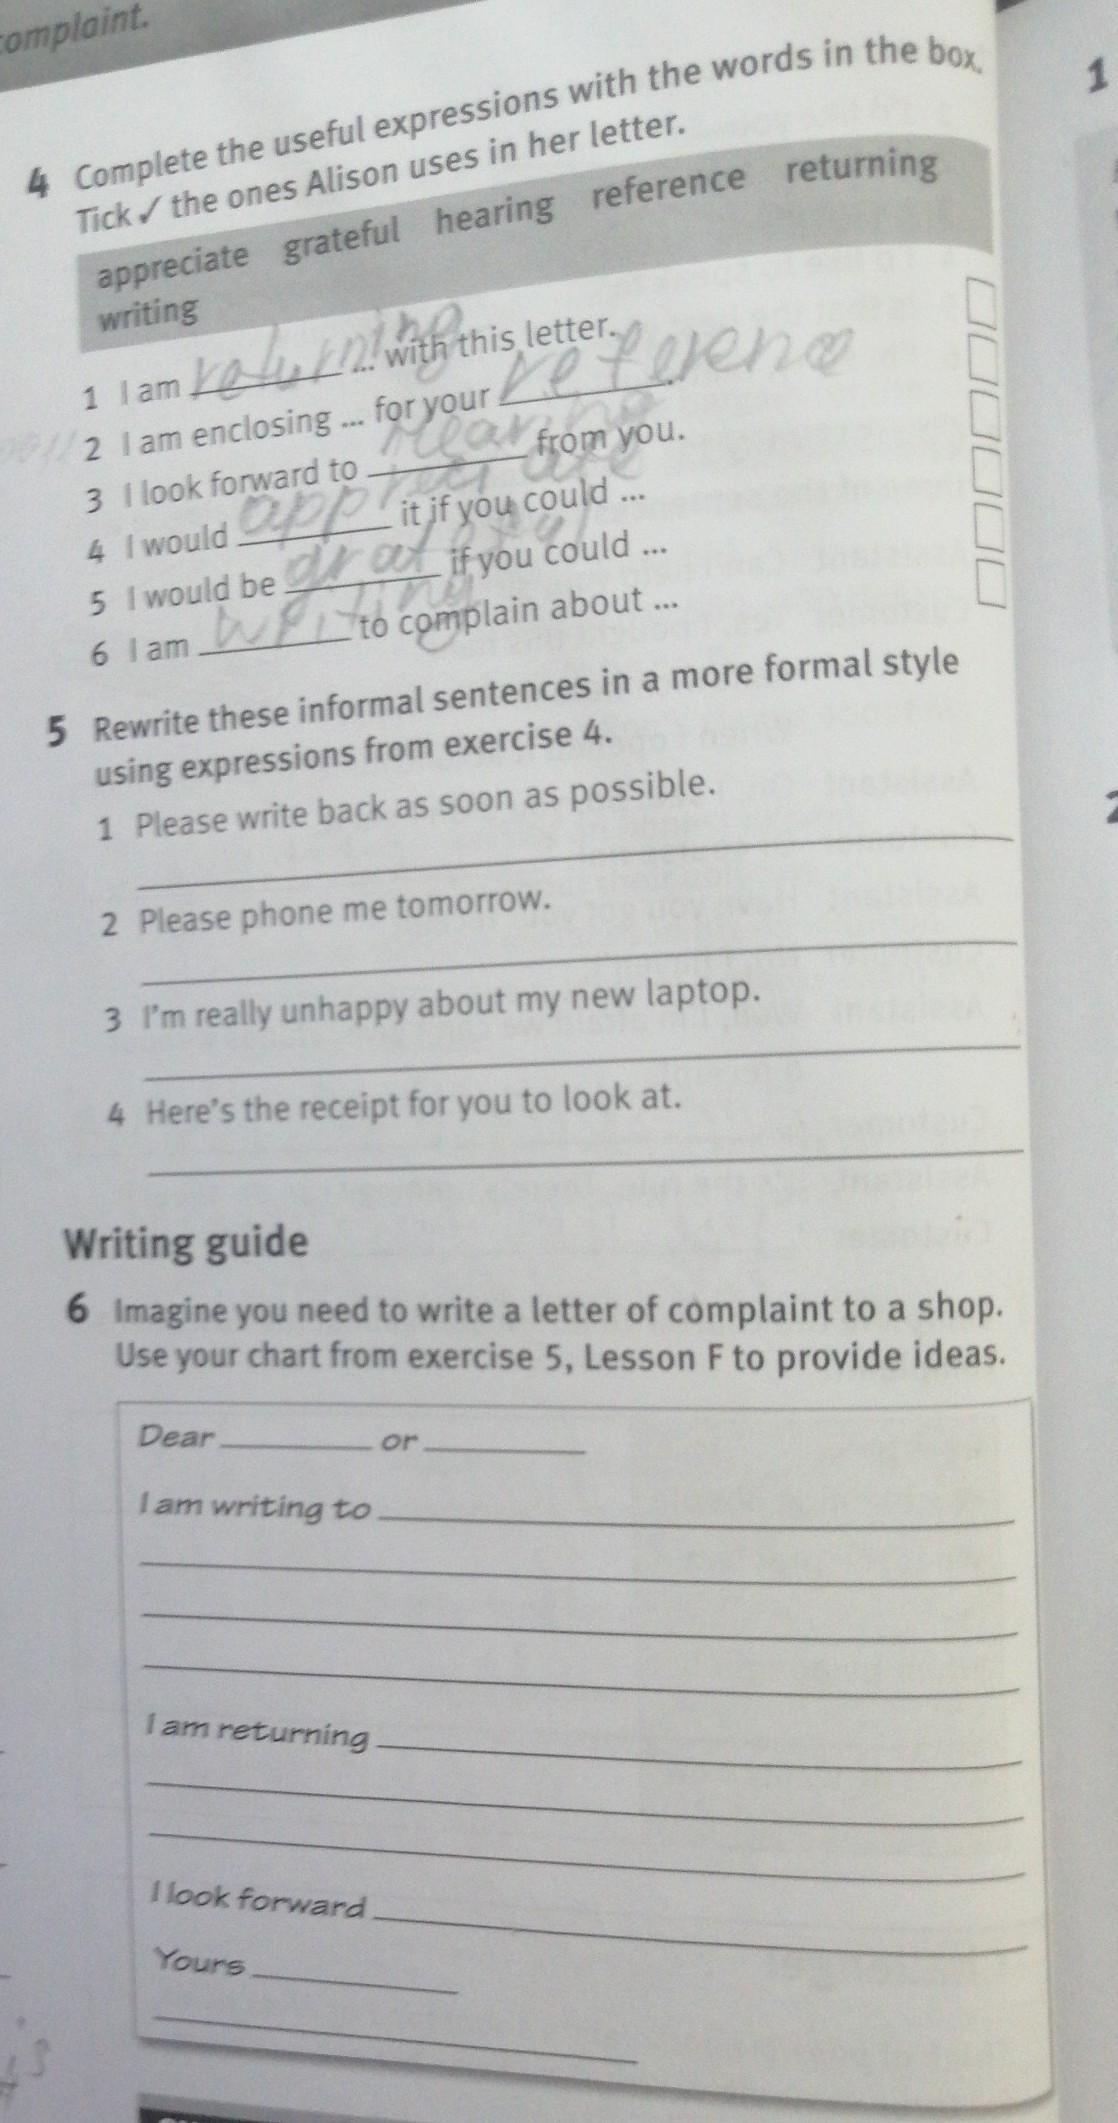 complaint.
4 Complete the useful expressions with the words in the box.
Tick ✓ the ones Alison uses in her letter.
appreciate grateful hearing reference returning
writing
1 I am returning ... with this letter.
2 I am enclosing ... for your reference.
3 I look forward to Hearing from you.
4 I would it if you could ...
5 I would be grateful if you could ...
6 I am writing to complain about ...
5 Rewrite these informal sentences in a more formal style
using expressions from exercise 4.
1 Please write back as soon as possible.
2 Please phone me tomorrow.
3 I'm really unhappy about my new laptop.
4 Here's the receipt for you to look at.
Writing guide
6 Imagine you need to write a letter of complaint to a shop.
Use your chart from exercise 5, Lesson F to provide ideas.
Dear or
I am writing to
I am returning
I look forward
Yours
1
2